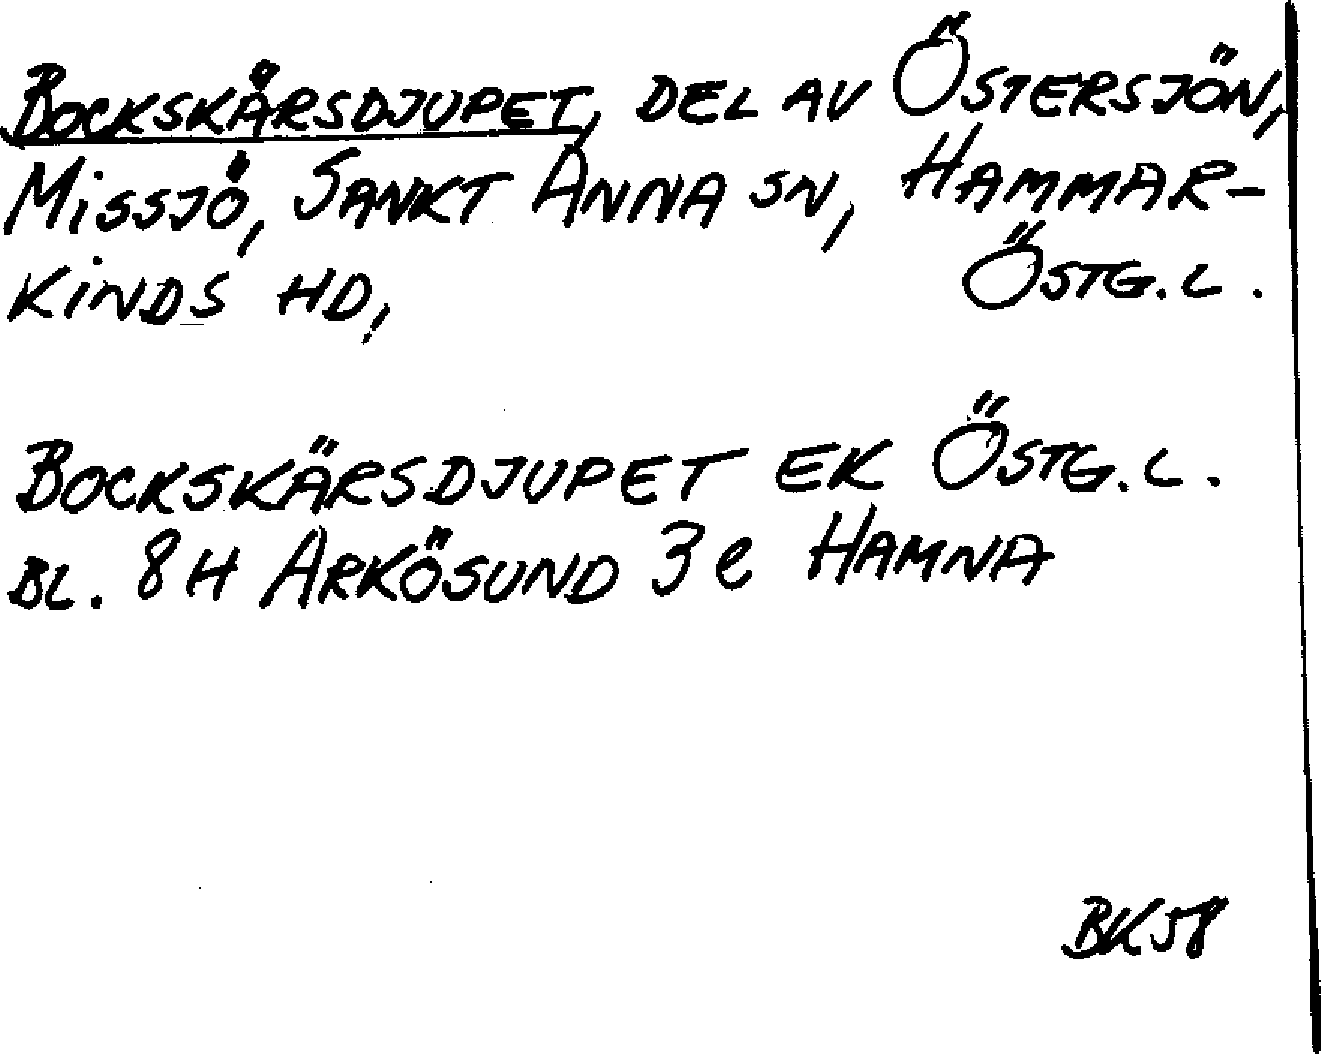 BOCKSKÄRSDJUPET, DEL AV ÖSTERSJÖN,
MISSJÖ, SANKT ANNA SN, HAMMAR-
KINDS HD, ÖSTG. L.
BOCKSKÄRSDJUPET EK ÖSTG. L.
BL. 8H ARKÖSUND 3e HAMNA
BK58